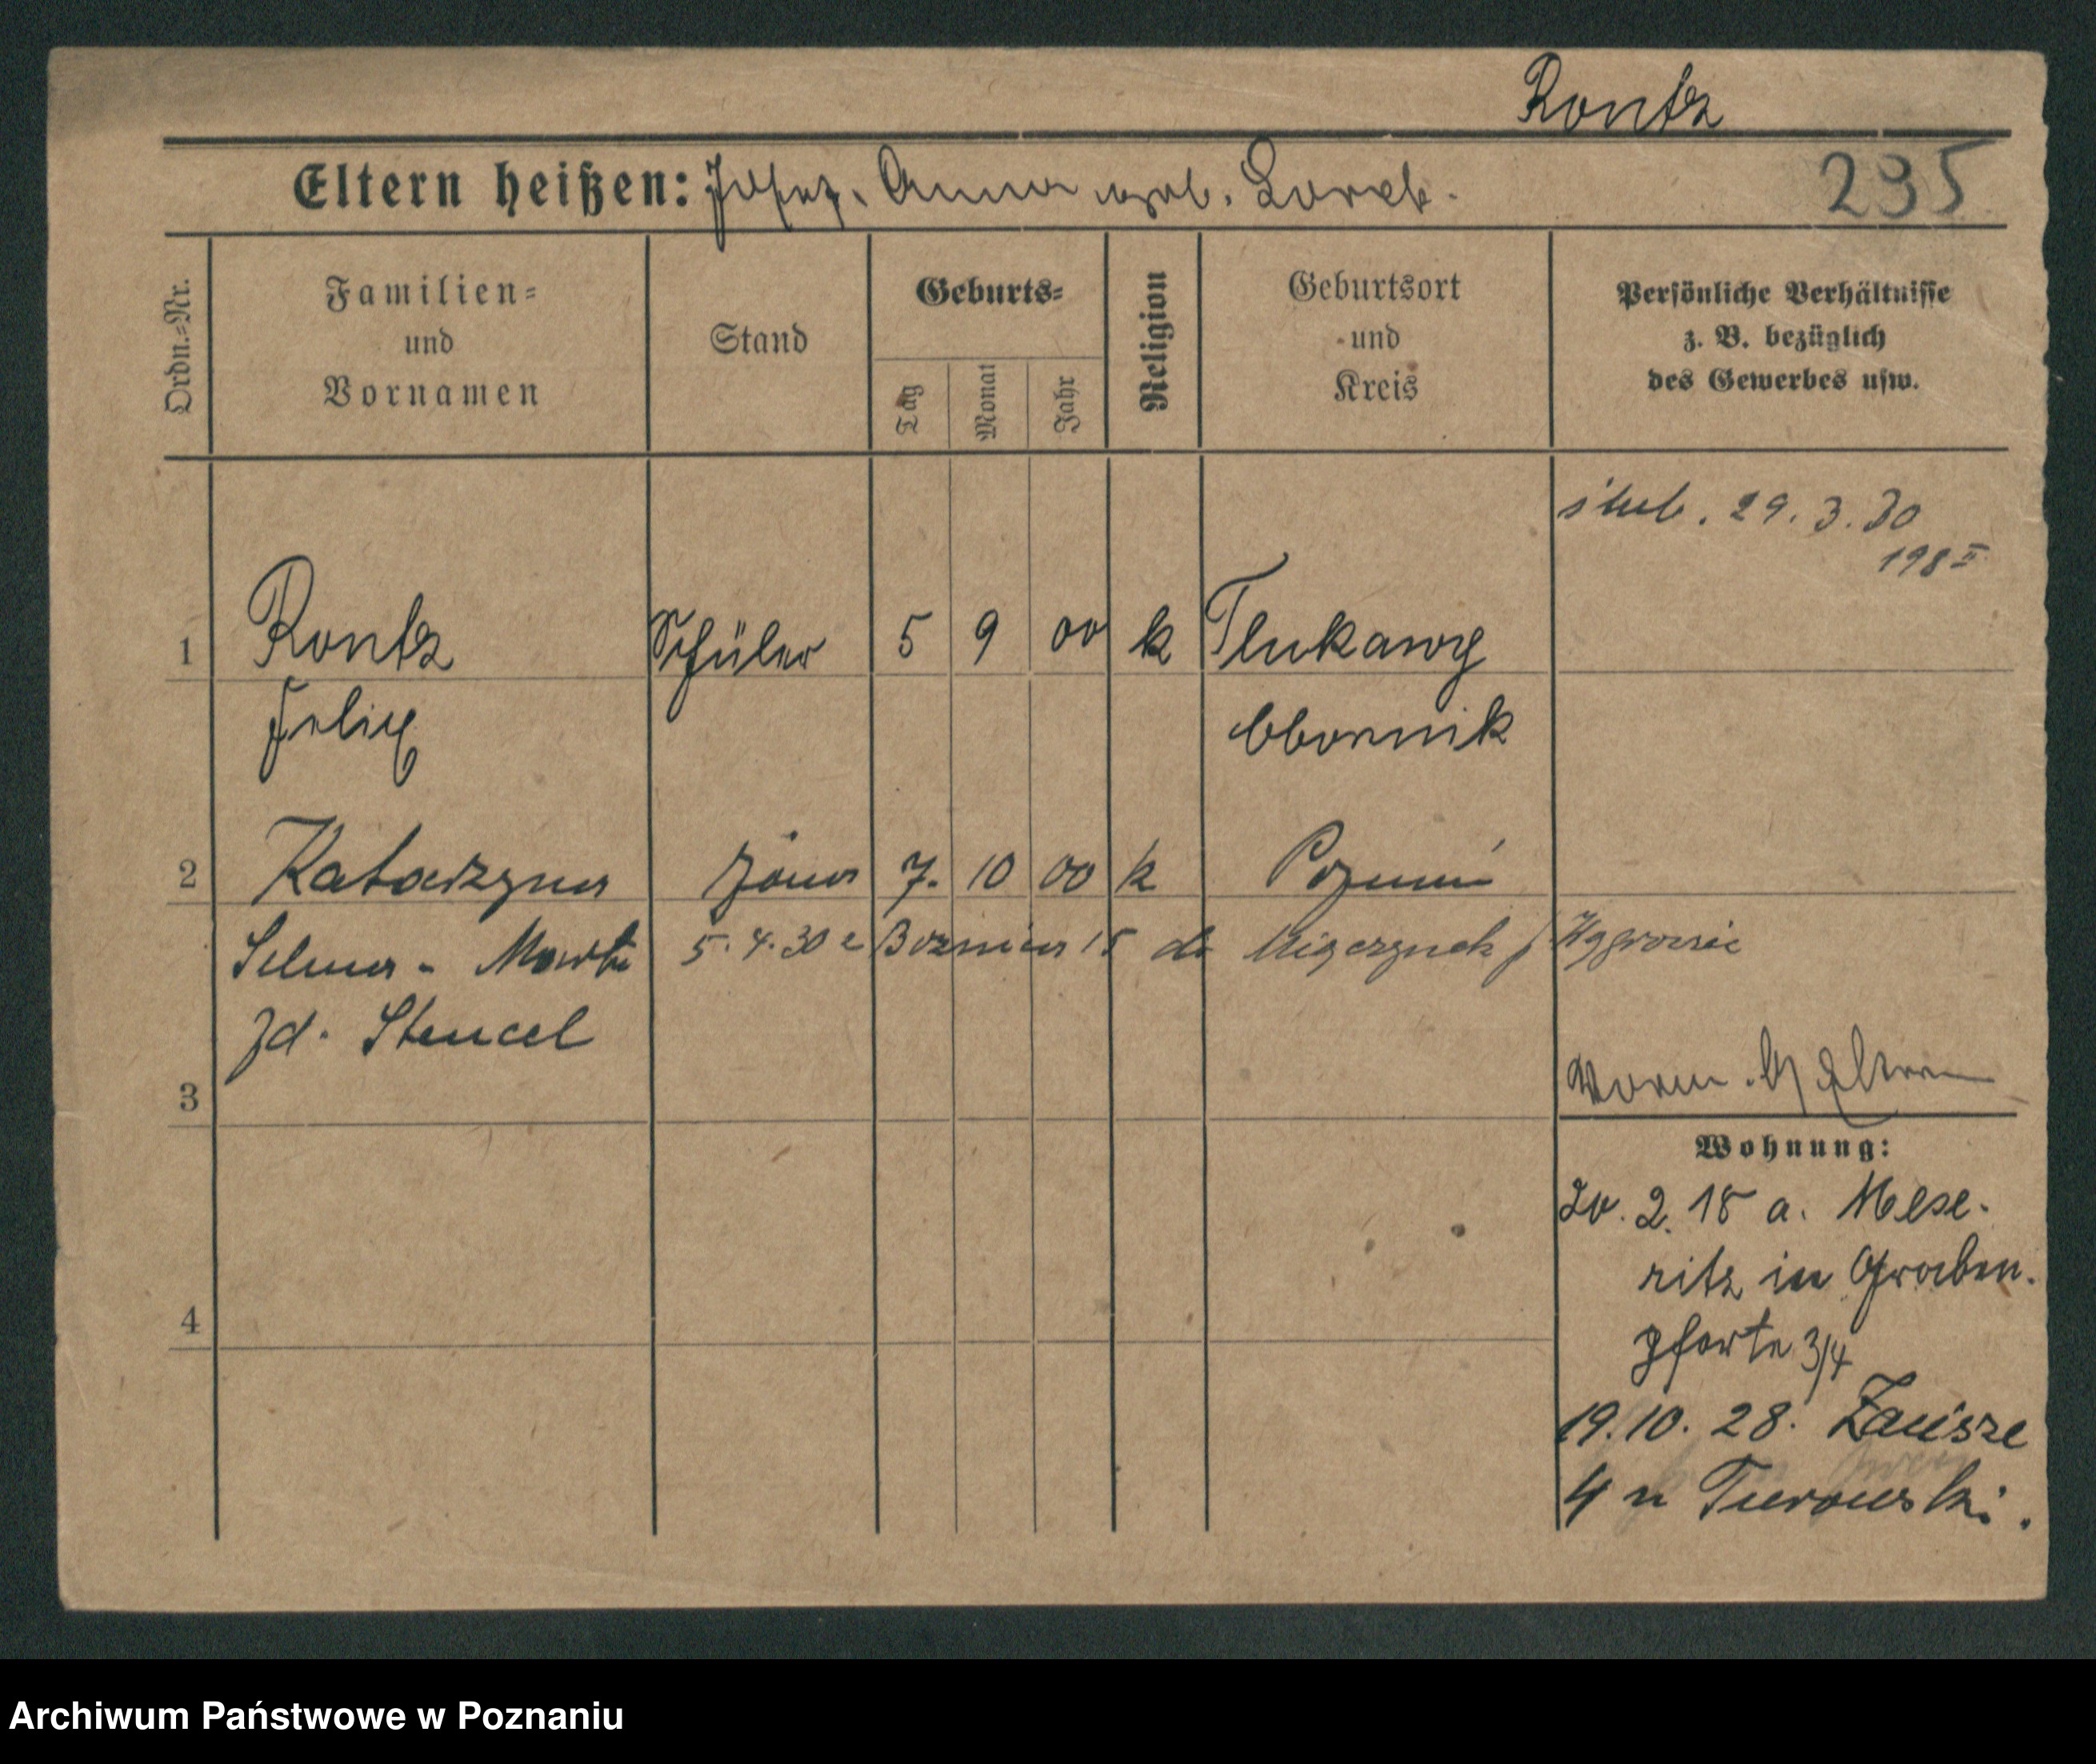 Rontz
Eltern heißen: Josef, Anna geb. Loreb.
295
Ordn.=Nr.
Familien=
und
Vornamen
Stand
Geburts=
Tag
Monat
Jahr
Religion
Geburtsort
und
Kreis
Persönliche Verhältnisse
z. B. bezüglich
des Gewerbes usw.
ślub. 29. 3. 30
198 II
1 Rontz Schüler 5 9 00 k Tlukawy
Felix Obornik
2 Katarzyna żona 7. 10 00 k Poznań
Selma - Marta 5. 4. 30 z Boznicza 15 do
zd. Stencel
Vorm. b/ Eltern
3
Wohnung:
Zv. 2. 18 a. Mese-
ritz in Graben-
pforte 3/4
4
19.10. 28. Zacisze
4 u Turowski.
Archiwum Państwowe w Poznaniu